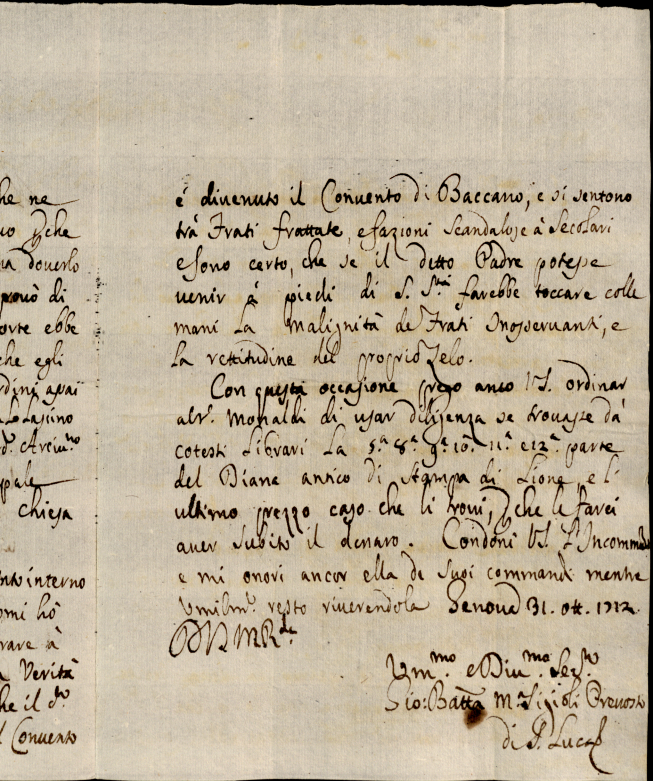 he ne
che
a doverlo
provò di
orte ebbe
che egli
rdini apai
pale
Chiesa
nto interno
omi hò
rare à
Verità
he il d.º
l Convento
è divenuto il Convento di Baccano, e si sentono
trà Frati frattate, e fazioni scandalose à Secolari
e sono certo, che se il detto Padre potesse
venir à piedi di S. S.tà farebbe toccare colle
mani la malignità de Frati Inosservanti, e
la rettitudine del proprio Zelo.
Con questa occasione prego anco V.S. ordinar
al Sr. Monaldi di usar diligenza se trovasse dà
cotesti Librari la 5.ª 8.ª 9.ª 10.ª 11.ª e 12.ª parte
del Diana antico di stampa di Lione, e li
ultimo prezzo caso che li trovi, che le farei
aver subito il denaro. Condoni VS. l'Incommodo
e mi onori ancor ella de suoi commandi mentre
Umilm.e resto riverendola Genova 31. Ott. 1712.
Um.mo e Div.mo Ser.re
Gio: Batta M.ª Prevosto
di S. Luca